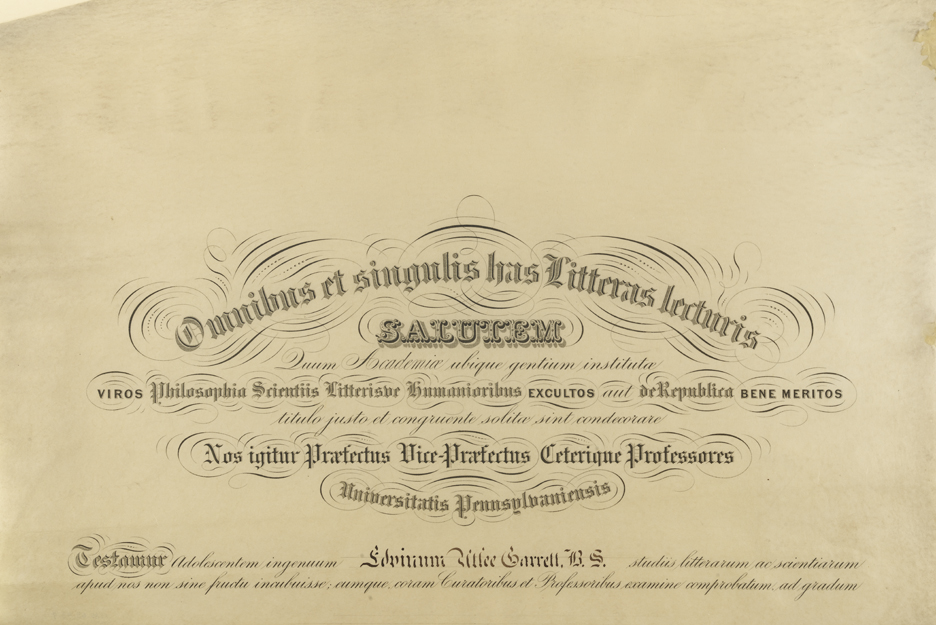 Omnibus et singulis has Litteras lecturis
SALUTEM
Quum Academiæ ubique gentium institutæ
VIROS Philosophia Scientiis Litterisve Humanioribus EXCULTOS aut de Republica BENE MERITOS
titulo justo et congruente solitæ sint condecorare
Nos igitur Præfectus Vice-Præfectus Ceterique Professores
Universitatis Pennsylvaniensis
Testamur Adolescentem ingenuum Edvinum Attee Garrett, B. S. studiis litterarum ac scientiarum
apud nos non sine fructu incubuisse; eumque, coram Curatoribus et Professoribus examine comprobatum, ad gradum